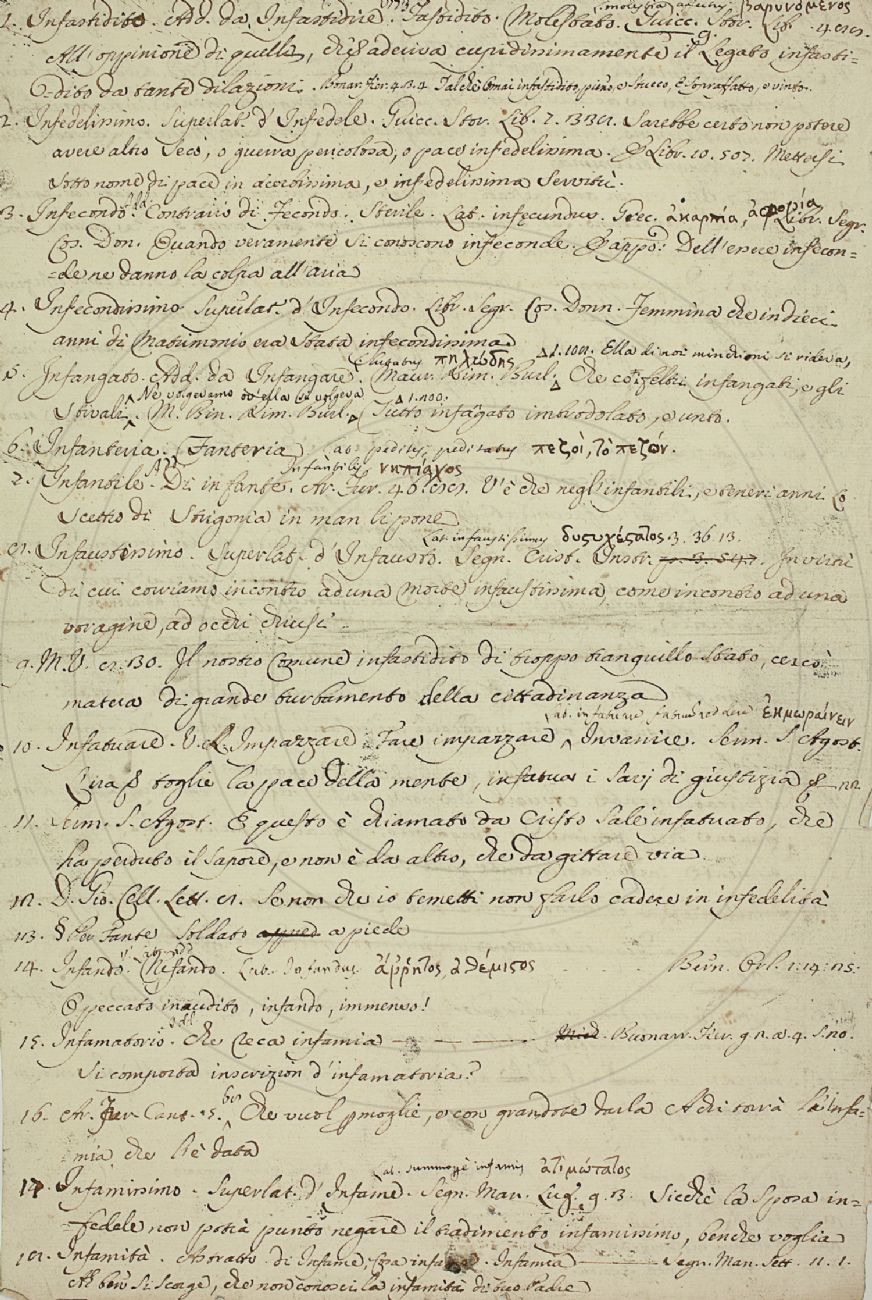 1. Infastidito. Add. da Infastidire. Fastidito. Molestato. molestia affectus βαρυνόμενος Guicc. Stor. Lib. 4.
All'oppinione di quelli, che aderiva cupidissimamente il Legato infasti-
dito da tante dilazioni. Buonar. Fier. 4.3.4 Talchè omai infastidito, pieno, e stucco, E sopraffatto, e vinto.
2. Infedelissimo. Superlat. d'Infedele. Guicc. Stor. Lib. 2. Sarebbe certo non potere
avere altro seco, o guerra pericolosa, o pace infedelissima. E Libr. 10. 507. Mettersi
sotto nome di pace in acerbissima, e infedelissima Servitù.
3. Infecondo. Add. Contrario di Fecondo. Sterile. Lat. infecundus. Grec. ἀκαρπία, ἀφορία Libr. Segr.
Cos. Don. Quando veramente si conoscono infeconde. E appo: Dell'essere infecon-
de ne danno la colpa all'aria
4. Infecondissimo. Superlat. d'Infecondo. Libr. Segr. Cos. Donn. Femmina che in dieci
anni di Matrimonio era stata infecondissima
5. Infangato. Add. da Infangare. Lutatus πηλώδης Maur. Rim. Burl. 1. Ella di noi minchioni si rideva,
Che co' feltri infangati, e gli
stivali Nè volgevamo ov'ella si volgeva. M. Bin. Rim. Burl. 1. Tutto infangato imbrodolato, e unto.
6. Infanteria. Fanteria Lat. pedites, peditatus πεζοί, τὸ πεζόν.
7. Infantile. Add. Di infante. Infantilis νηπίαχος Ar. Fur. 46. V'è che negl'infantili, e teneri anni Lo
Scettro di Strigonia in man li pone
8. Infaustissimo. Superlat. d'Infausto. Lat. infaustissimus δυςυχέςατος. Segn. Crist. Instr. 3. 36 13. In virtù
di cui corriamo incontro ad una Morte infaustissima, come incontro ad una
voragine, ad occhi chiusi.
9. M.V. 8. 130. Il nostro Comune infastidito di troppo tranquillo stato, cercò
matera di grande turbamento della cittadinanza
10. Infatuare. V.L. Impazzare. Fare impazzare, Lat. infatuare fatuum reddere ἐκμωραίνειν Invanire. Serm. S. Agost.
L'ira toglie la pace della mente, infatua i Savj di giustizia
11. Serm. S. Agost. E questo è chiamato da Cristo Sale infatuato, che
ha perduto il sapore, e non è da altro, che da gittare via.
12. D. Gio. Cell. Lett. 8. Se non che io temetti non farlo cadere in infedelità
13. § Per Fante Soldato a piede
14. Infando. Add. Nefando. Lat. Infandus ἄῤῥητος, ἀθέμιςος Bern. Orl. 1. 14. 25.
O peccato inaudito, infando, immenso!
15. Infamatorio. Add. Che reca infamia Buonarr. Fier. g 2. a. 4. S. 20.
Si comporta inscrizion d'infamatoria?
16. Ar. Fur. Cant. 5. Che vuol per moglie, e con gran dote darla A chi torrà l'infa-
mia che l'è data
17. Infamissimo. Superlat. d'Infame. Lat. summopè infamis ἀτιμώτατος Segn. Man. Lug. 9. 3. Sicchè la Sposa in-
fedele non potrà punto negare il tradimento infamissimo, benchè voglia
18. Infamità. Astratto di Infame; Cosa infame. Infamia Segn. Man. Sett. 11. 1.
Ah ben si scorge, che non conosci la infamità di tuo Padre